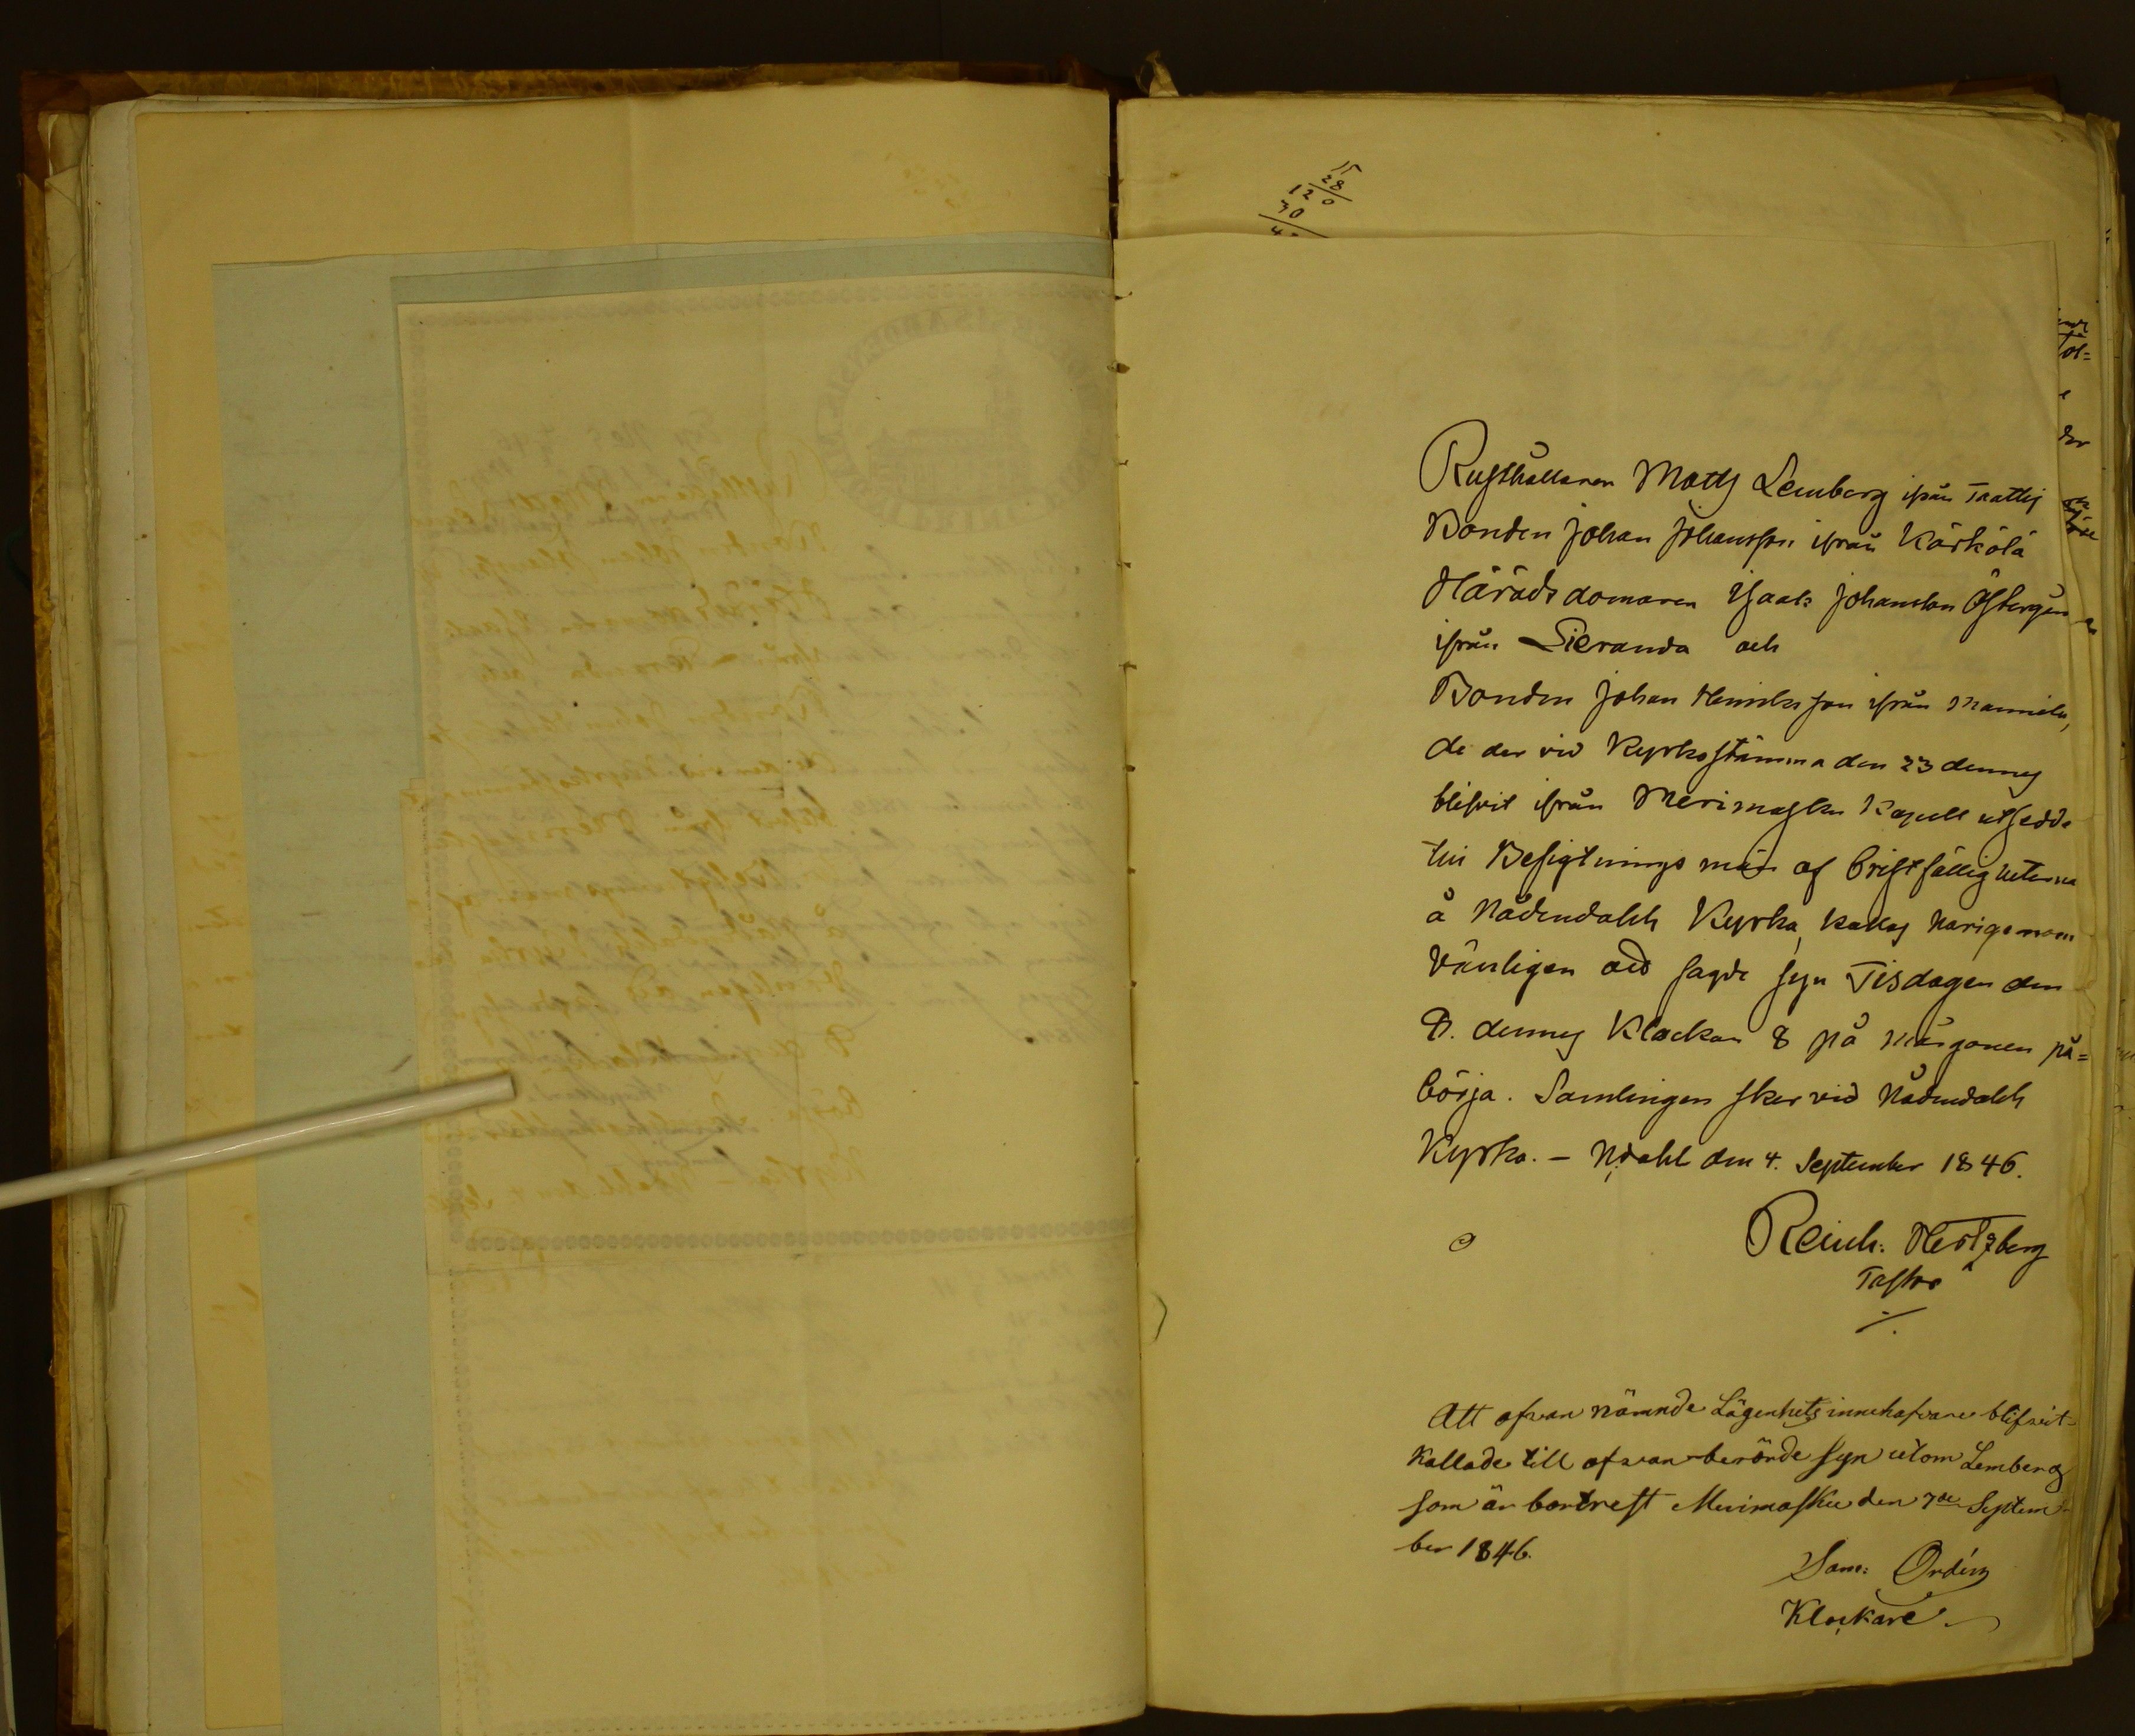 15
28
120
30
Rusthållaren Matts Lemberg ifrån Taattis
Bonden Johan Johansson ifrån Kärkölä
Häradsdomaren Isaak Johansson Östergren
ifrån Pieranda och
Bonden Johan Henriksson ifrån Mannila,
de der vid Kyrkostämma den 23 dennes
blifvit ifrån Merimasku Kapell utsedde
till Besigtnings män af bristfälligheterna
å Nådendahls Kyrka, kallas härigenom
vänligen att sagde syn Tisdagen den
8. dennes Klockan 8 på Morgonen på=
börja. Samlingen sker vid Nådendahls
Kyrka. – Ndahl den 4. September 1846.
Reinh: Hertzberg
Pastor
Att ofvan nämnde Lägenhets innehafvare blifvit
kallade till ofvan berörde syn utom Lemberg
som är bortrest Merimasku den 7de Septem-
ber 1846.
Sam: Ordin
Klockare